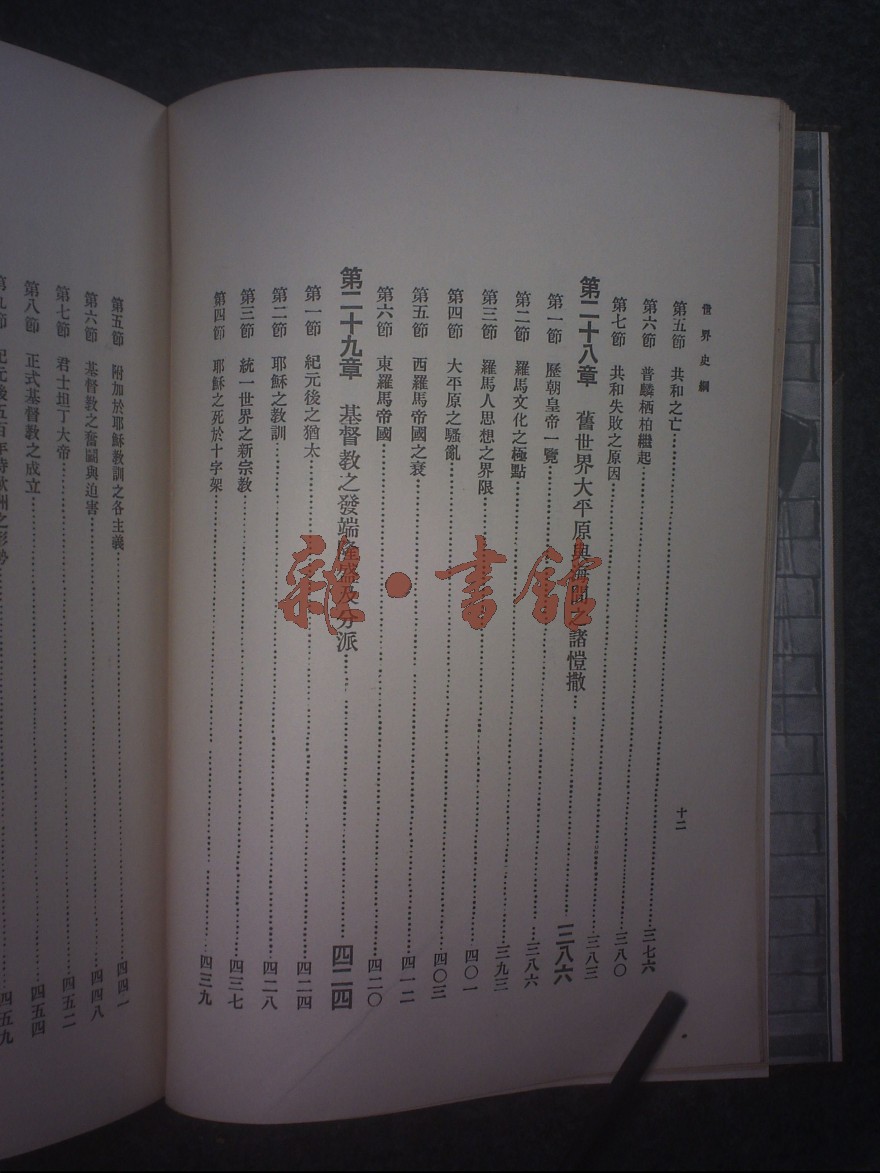 世界史綱
十二
第五節 共和之亡 三七六
第六節 普麟栖柏繼起 三八〇
第七節 共和失敗之原因 三八三
第二十八章 舊世界大平原與海間之諸愷撒 三八六
第一節 歷朝皇帝一覽 三八六
第二節 羅馬文化之極點 三九三
第三節 羅馬人思想之界限 四〇一
第四節 大平原之騷亂 四〇三
第五節 西羅馬帝國之衰 四一二
第六節 東羅馬帝國 四二〇
第二十九章 基督教之發端隆盛及分派 四二四
第一節 紀元後之猶太 四二四
第二節 耶穌之教訓 四二八
第三節 統一世界之新宗教 四三七
第四節 耶穌之死於十字架 四三九
第五節 附加於耶穌教訓之各主義 四四一
第六節 基督教之奮鬭與迫害 四四八
第七節 君士坦丁大帝 四五二
第八節 正式基督教之成立 四五四
第九節 紀元後五百年時歐洲之形勢 四五九
雜·書館